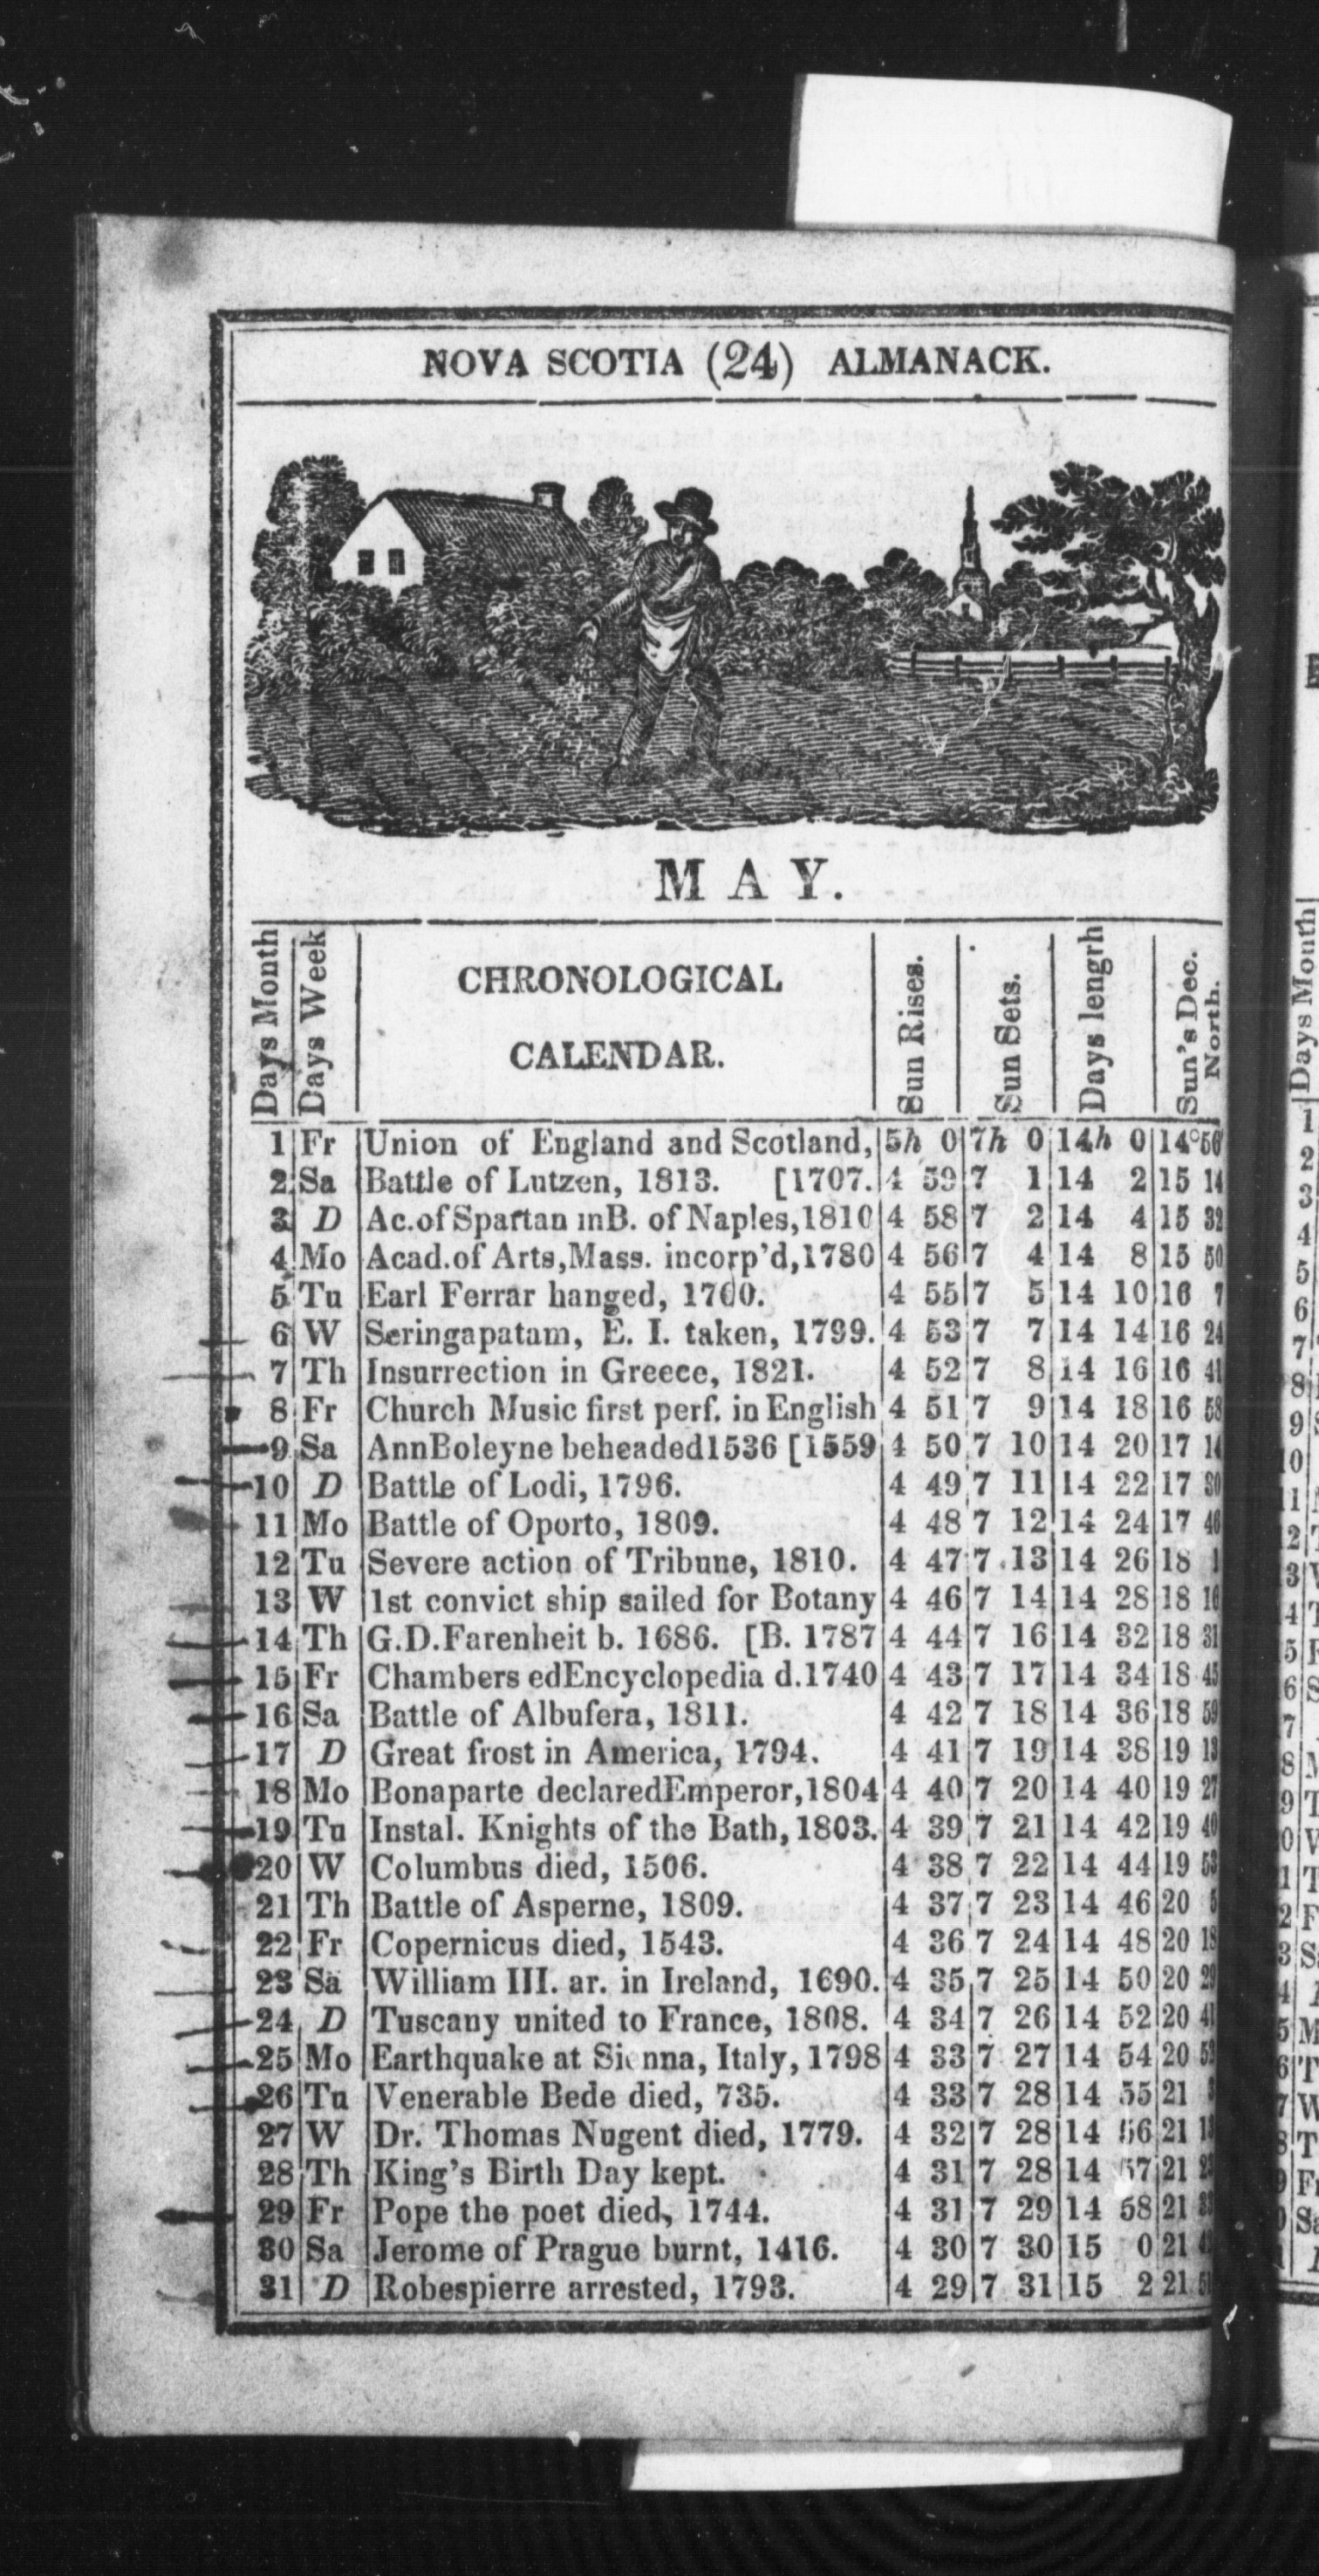 NOVA SCOTIA (24) ALMANACK.
MAY.
Days Month Days Week CHRONOLOGICAL CALENDAR. Sun Rises. Sun Sets. Days lengrh Sun's Dec. North.
1 Fr Union of England and Scotland, 5h 0 7h 0 14h 0 14°56'
2 Sa Battle of Lutzen, 1813. [1707. 4 59 7 1 14 2 15 14
3 D Ac.of Spartan inB. of Naples,1810 4 58 7 2 14 4 15 32
4 Mo Acad.of Arts,Mass. incorp'd,1780 4 56 7 4 14 8 15 50
5 Tu Earl Ferrar hanged, 1760. 4 55 7 5 14 10 16 7
6 W Seringapatam, E. I. taken, 1799. 4 53 7 7 14 14 16 24
7 Th Insurrection in Greece, 1821. 4 52 7 8 14 16 16 41
8 Fr Church Music first perf. in English 4 51 7 9 14 18 16 58
9 Sa AnnBoleyne beheaded1536 [1559 4 50 7 10 14 20 17 14
10 D Battle of Lodi, 1796. 4 49 7 11 14 22 17 30
11 Mo Battle of Oporto, 1809. 4 48 7 12 14 24 17 46
12 Tu Severe action of Tribune, 1810. 4 47 7 13 14 26 18 1
13 W 1st convict ship sailed for Botany 4 46 7 14 14 28 18 16
14 Th G.D.Farenheit b. 1686. [B. 1787 4 44 7 16 14 32 18 31
15 Fr Chambers edEncyclopedia d.1740 4 43 7 17 14 34 18 45
16 Sa Battle of Albufera, 1811. 4 42 7 18 14 36 18 59
17 D Great frost in America, 1794. 4 41 7 19 14 38 19 13
18 Mo Bonaparte declaredEmperor,1804 4 40 7 20 14 40 19 27
19 Tu Instal. Knights of the Bath, 1803. 4 39 7 21 14 42 19 40
20 W Columbus died, 1506. 4 38 7 22 14 44 19 53
21 Th Battle of Asperne, 1809. 4 37 7 23 14 46 20 5
22 Fr Copernicus died, 1543. 4 36 7 24 14 48 20 18
23 Sa William III. ar. in Ireland, 1690. 4 35 7 25 14 50 20 29
24 D Tuscany united to France, 1808. 4 34 7 26 14 52 20 41
25 Mo Earthquake at Sienna, Italy, 1798 4 33 7 27 14 54 20 52
26 Tu Venerable Bede died, 735. 4 33 7 28 14 55 21
27 W Dr. Thomas Nugent died, 1779. 4 32 7 28 14 56 21 13
28 Th King's Birth Day kept. 4 31 7 28 14 57 21 23
29 Fr Pope the poet died, 1744. 4 31 7 29 14 58 21
30 Sa Jerome of Prague burnt, 1416. 4 30 7 30 15 0 21
31 D Robespierre arrested, 1793. 4 29 7 31 15 2 21 51